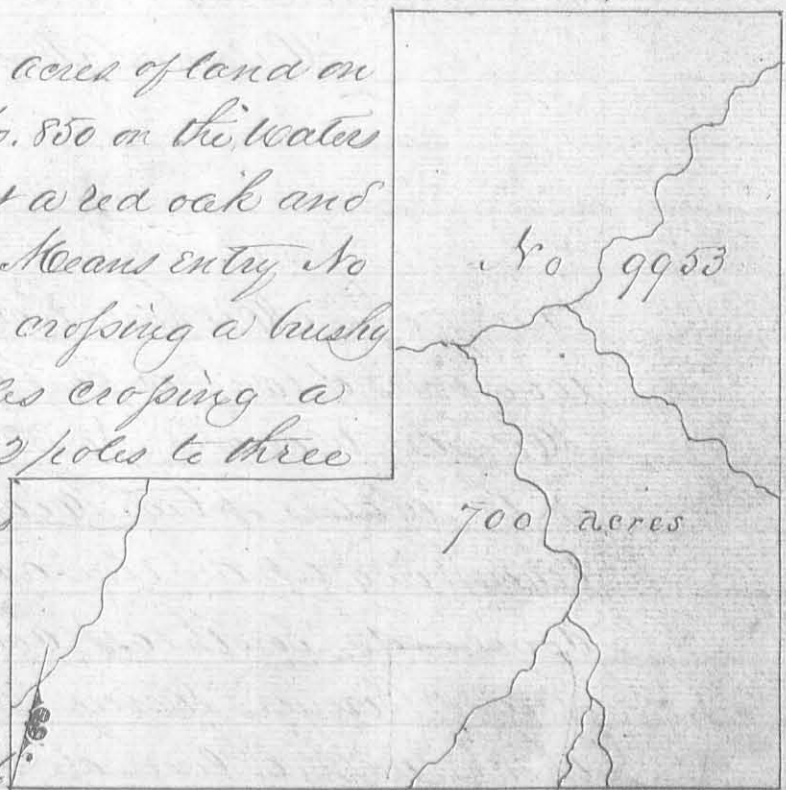 acres of land on
o. 850 on the waters
t a red oak and
Means entry No
crossing a brushy
les crossing a
2 poles to three
No 9953
700 acres